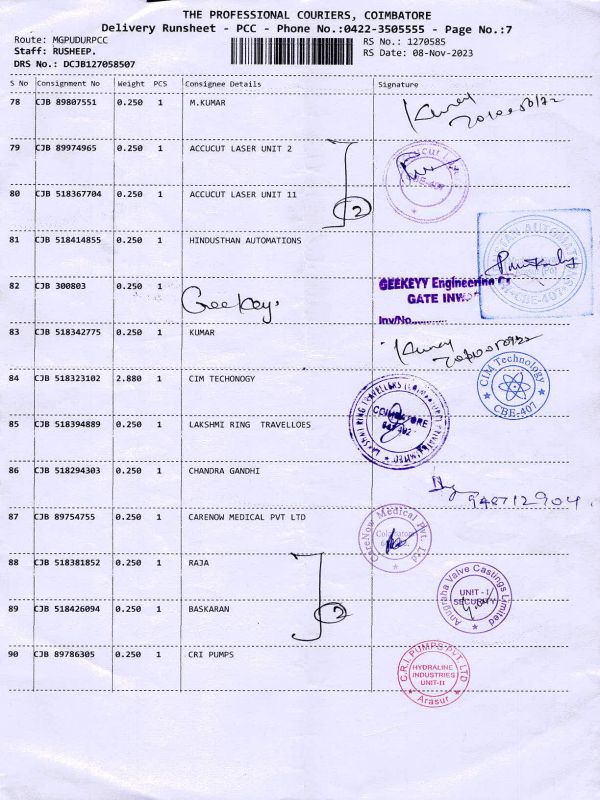 THE PROFESSIONAL COURIERS, COIMBATORE
Delivery Runsheet - PCC - Phone No.:0422-3505555 - Page No.:7
Route: MGPUDURPCC
Staff: RUSHEEP.
DRS No.: DCJB127058507
RS No.: 1270585
RS Date: 08-Nov-2023
S No Consignment No Weight PCS Consignee Details Signature
78 CJB 89807551 0.250 1 M.KUMAR
79 CJB 89974965 0.250 1 ACCUCUT LASER UNIT 2
80 CJB 518367704 0.250 1 ACCUCUT LASER UNIT 11
2
81 CJB 518414855 0.250 1 HINDUSTHAN AUTOMATIONS
82 CJB 300803 0.250 1 Geekey.
GEEKEYY Engineering
GATE INW
Inv/No..........
83 CJB 518342775 0.250 1 KUMAR
84 CJB 518323102 2.880 1 CIM TECHONOGY
CIM Technology
CBE-407
85 CJB 518394889 0.250 1 LAKSHMI RING TRAVELLOES
LAKSHMI RING TRAVELLERS
COIMBATORE
86 CJB 518294303 0.250 1 CHANDRA GANDHI
948712904.
87 CJB 89754755 0.250 1 CARENOW MEDICAL PVT LTD
CareNow Medical Pvt. Ltd
88 CJB 518381852 0.250 1 RAJA
89 CJB 518426094 0.250 1 BASKARAN
2
Anugraha Valve Castings Limited
UNIT - I
SECURITY
90 CJB 89786305 0.250 1 CRI PUMPS
C.R.I. PUMPS PVT. LTD
HYDRALINE
INDUSTRIES
UNIT-II
Arasur